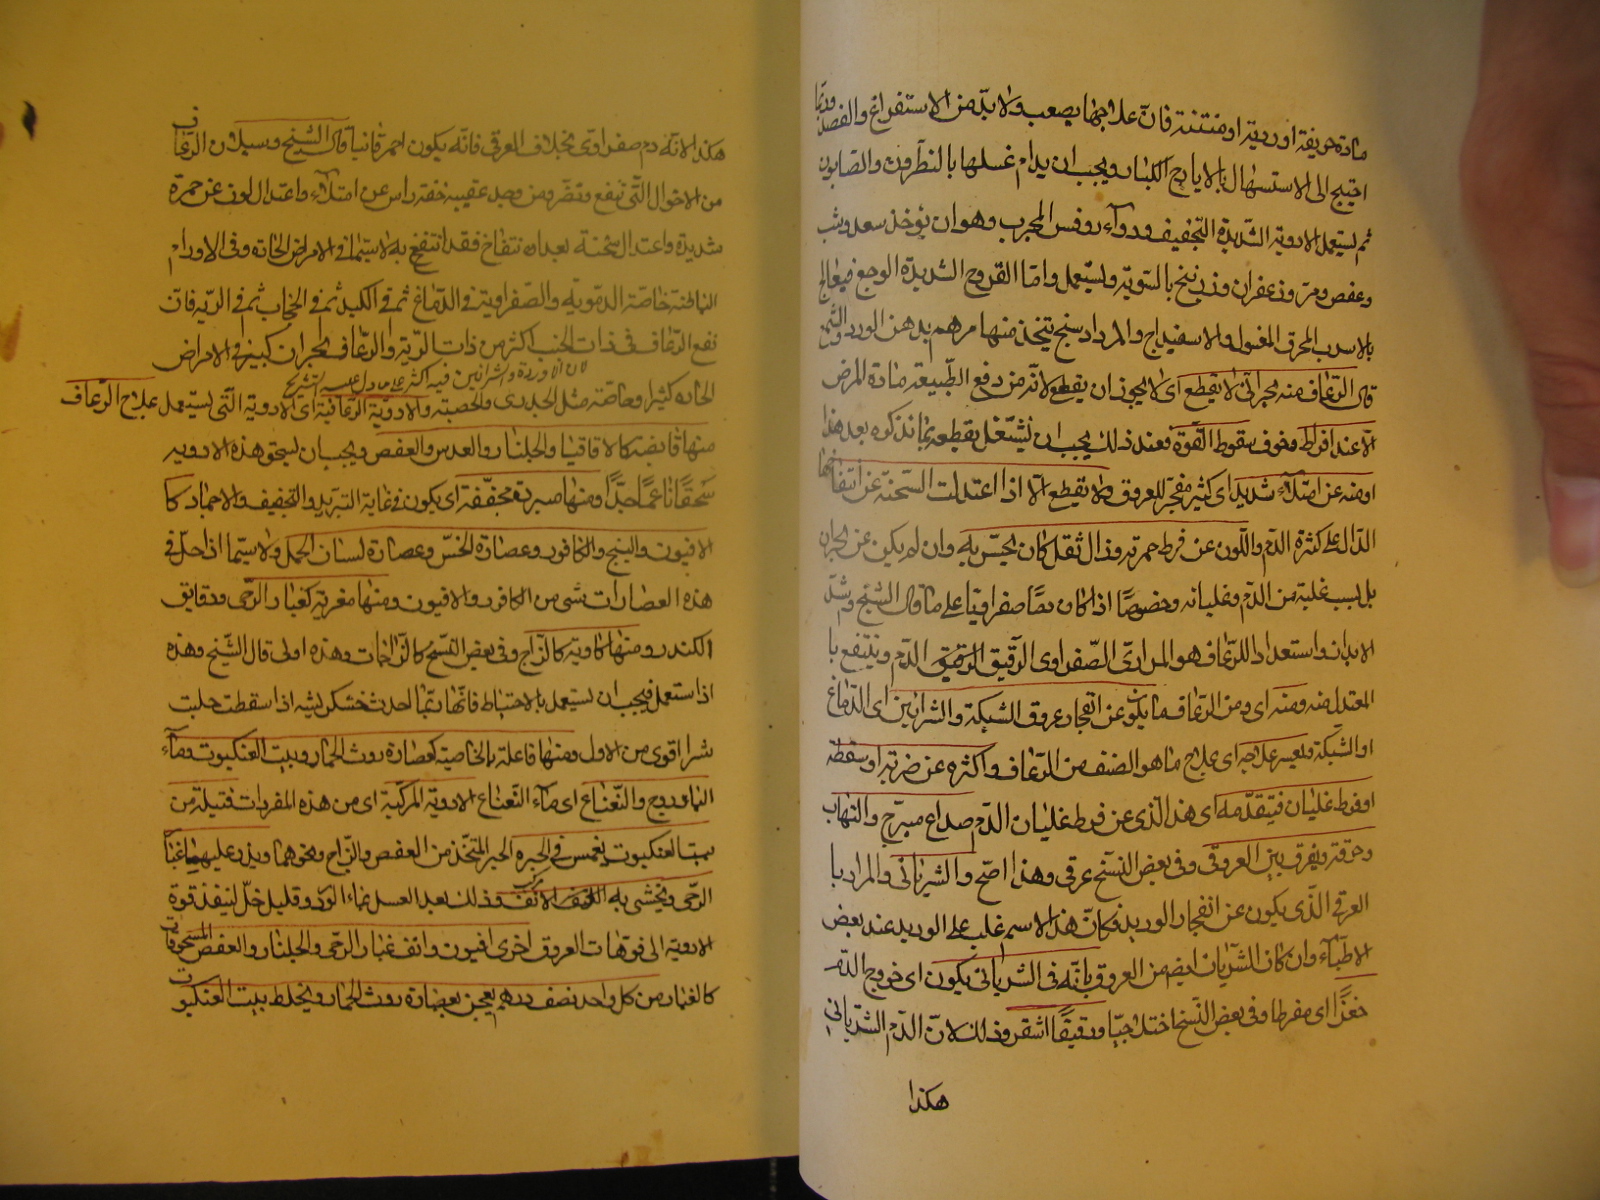 مادة حريفة او ردية او منتنة فانّ علاجها يصعب ولا بدّ من الاستفراغ والفصد وربّما
احتيج الى الاستسهال بالايارج الكبار ويجب ان يدام غسلها بالنطرون والصابون
ثم يستعمل الادوية الشديدة التجفيف ودوآء روفس المجرب وهو ان يؤخذ سعد وشب
وعفص ومر وزعفران وزرنيخ بالسوية ويستعمل وامّا القروح الشديدة الوجع فيعالج
بالاسرب المحرق المغسول والاسفيداج والمرداسنج يتخذ منها مرهم بدهن الورد والشمع
قال الرعاف منه بحراني لا يقطع اى لا يجوز ان يقطع لانّه من دفع الطبيعة مادة المرض
الّا عند افراط وخوف سقوط القوة فعند ذلك يجب ان يشتغل بقطعه بما نذكره بعد هذا
او منه عن امتلآء شديد اى كثير مفجّر للعروق ولا يقطع الّا اذا اعتدلت السحنة عن انتفاخها
الدالّ على كثرة الدم واللون عن فرط حمرته وزال ثقل كان يحسّ به وان لم يكن عن بحران
بل بسبب غلبة من الدم وغليانه وخصوصًا اذا كان دمًا صفراويًا على ما قال الشيخ واشدّ
الابدان استعدادا للرعاف هو المرارىّ الصفراوى الرقيق الدم وينتفع با
المعتدل منه ومنه اى ومن الرعاف ما يكون عن انفجار عروق الشبكة والشرايين اى الدماغ
او الشبكة ويعسر علاجه اى علاج ما هو الصنف من الرعاف واكثره عن ضربة او سقطة
او فرط غليان فيتقدّمه اى هذا الذى عن فرط غليان الدم صداع مبرح والتهاب
وحرقة ويفرق بين العروقى وفى بعض النسخ عرقى وهذا اصح والشريانى والمراد با
العرقى الذى يكون عن انفجار الوريد فكانّ هذا الاسم غلب على الوريد عند بعض
الاطباء وان كان الشريان ايضا من العروق بانّه فى الشريانى يكون اى خروج الدم
حفزًا اى مفرطا وفى بعض النسخ رقيقًا اشقر وذلك لانّ الدم الشريانى
هكذا
هكذا لانّه دم صفراوىّ بخلاف العرقى فانّه يكون احمر قانيا قال الشيخ وسيلان الرعاف
من الاحوال التى تنفع وتضر ومن وجد عقيبه خفة راس عن امتلآء واعتدال لون عن حمرة
شديدة واعتدال سحنة بعد انتفاخ فقد انتفع به لاسيما فى الامراض الحادة وفى الاورام
الباطنة خاصة الدموية والصفراوية فى الدماغ ثم فى الكبد ثم فى الحجاب ثم فى الرية فان
نفع الرعاف فى ذات الجنب اكثر من ذات الرية والرعاف بحران كبير فى الامراض
لان الاوردة والشرايين فيه اكثر على ما دل عليه التشريح
الحادة كثيرا وخاصة مثل الجدرى والحصبة والادوية الرعافية اى الادوية التى يستعمل علاج الرعاف
منها قابضة كالاقاقيا والجلنار والعدس والعفص ويجب ان يسحق هذه الادوية
سحقًا ناعمًا جدًّا ومنها مبردة مجففة اى يكون فى غاية التبريد والتجفيف والاجماد كا
الافيون والبنج والكافور وعصارة الخسّ وعصارة لسان الحمل ولاسيما اذا حلّ فى
هذه العصارات شى من الكافور والافيون ومنها مغرية كغبار الرحى ودقايق
الكندر ومنها كاوية كالزاج وفى بعض النسخ كالزاجات وهذه اولى قال الشيخ وهذه
اذا استعمل فيجب ان يستعمل بالاحتياط فانّها ربّما احدث خشكريشة اذا سقطت جلبت
شرا اقوى من الاول ومنها فاعلة بالخاصية كعصارة روث الحمار وبيت العنكبوت ومآء
الباذروج والنعناع اى مآء النعناع الادوية المركبة اى من هذه المفردات فتيلة من
بيت العنكبوت يغمس فى الحبر اى الحبر المتخذ من العفص والزاج ونحوهما ويذر عليها غبار
الرحى ويحشى به الانف وذلك بعد الغسل بماء الورد وقليل خلّ لينفذ قوة
الادوية الى فوهات العروق اخرى افيون وانف غبار الرحى والجلنار والعفص المسحوقات
كالغبار من كل واحد نصف درهم يعجن بعصارة روث الحمار ويخلط ببيت العنكبوت